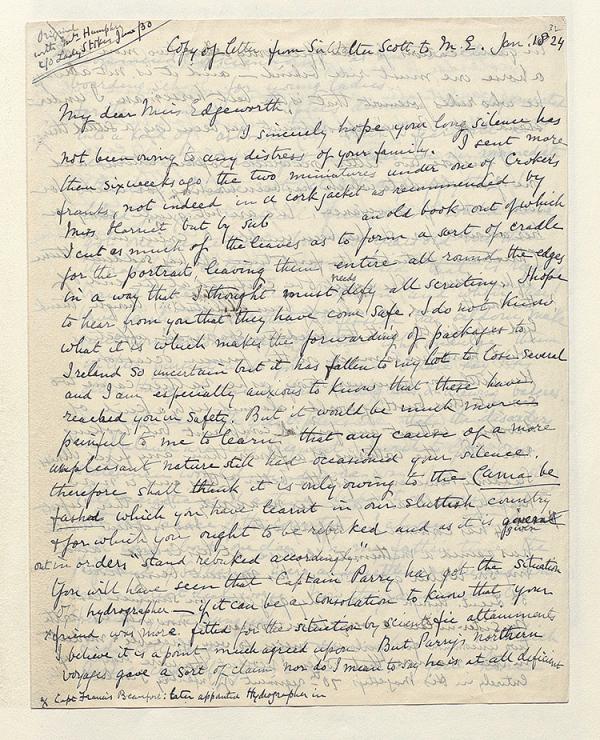 Original
with Mrs Humphry
c/o Lady Stokes June/30
32
Copy of letter from Sir Walter Scott, to M. E. Jan: 1824
My dear Miss Edgeworth,
I sincerely hope your long silence has
not been owing to any distress of your family. I sent more
than six weeks ago the two miniatures under one of Crokers
franks, not indeed in a cork jacket as recommended by
Miss Harriet but by sub an old book out of which
I cut as much of the leaves as to form a sort of cradle
for the portrait, leaving them entire all round the edges
in a way that I thought must needs defy all scrutiny. I hope
to hear from you that they have come safe, I do not know
what it is which makes the forwarding of packages to
Ireland so uncertain but it has fallen to my lot to lose several
and I am especially anxious to know that these have
reached you in safety. But it would be much more
painful to me to learn that any cause of a more
unpleasant nature still had occasioned your silence.
therefore shall think it is only owing to the Canna be
fashed which you have learnt in our sluttish country
& for which you ought to be rebuked and as it is given
out in orders "stand rebuked accordingly"
You will have seen that Captain Parry has got the situation
of hydrographer — if it can be a consolation to know that your
x friend was more fitted for the situation by scientific attainments
I believe it is a point much agreed upon. But Parry's Northern
voyages gave a sort of claim nor do I mean to say he is at all deficient
x Capt Francis Beaufort: later appointed Hydrographer in